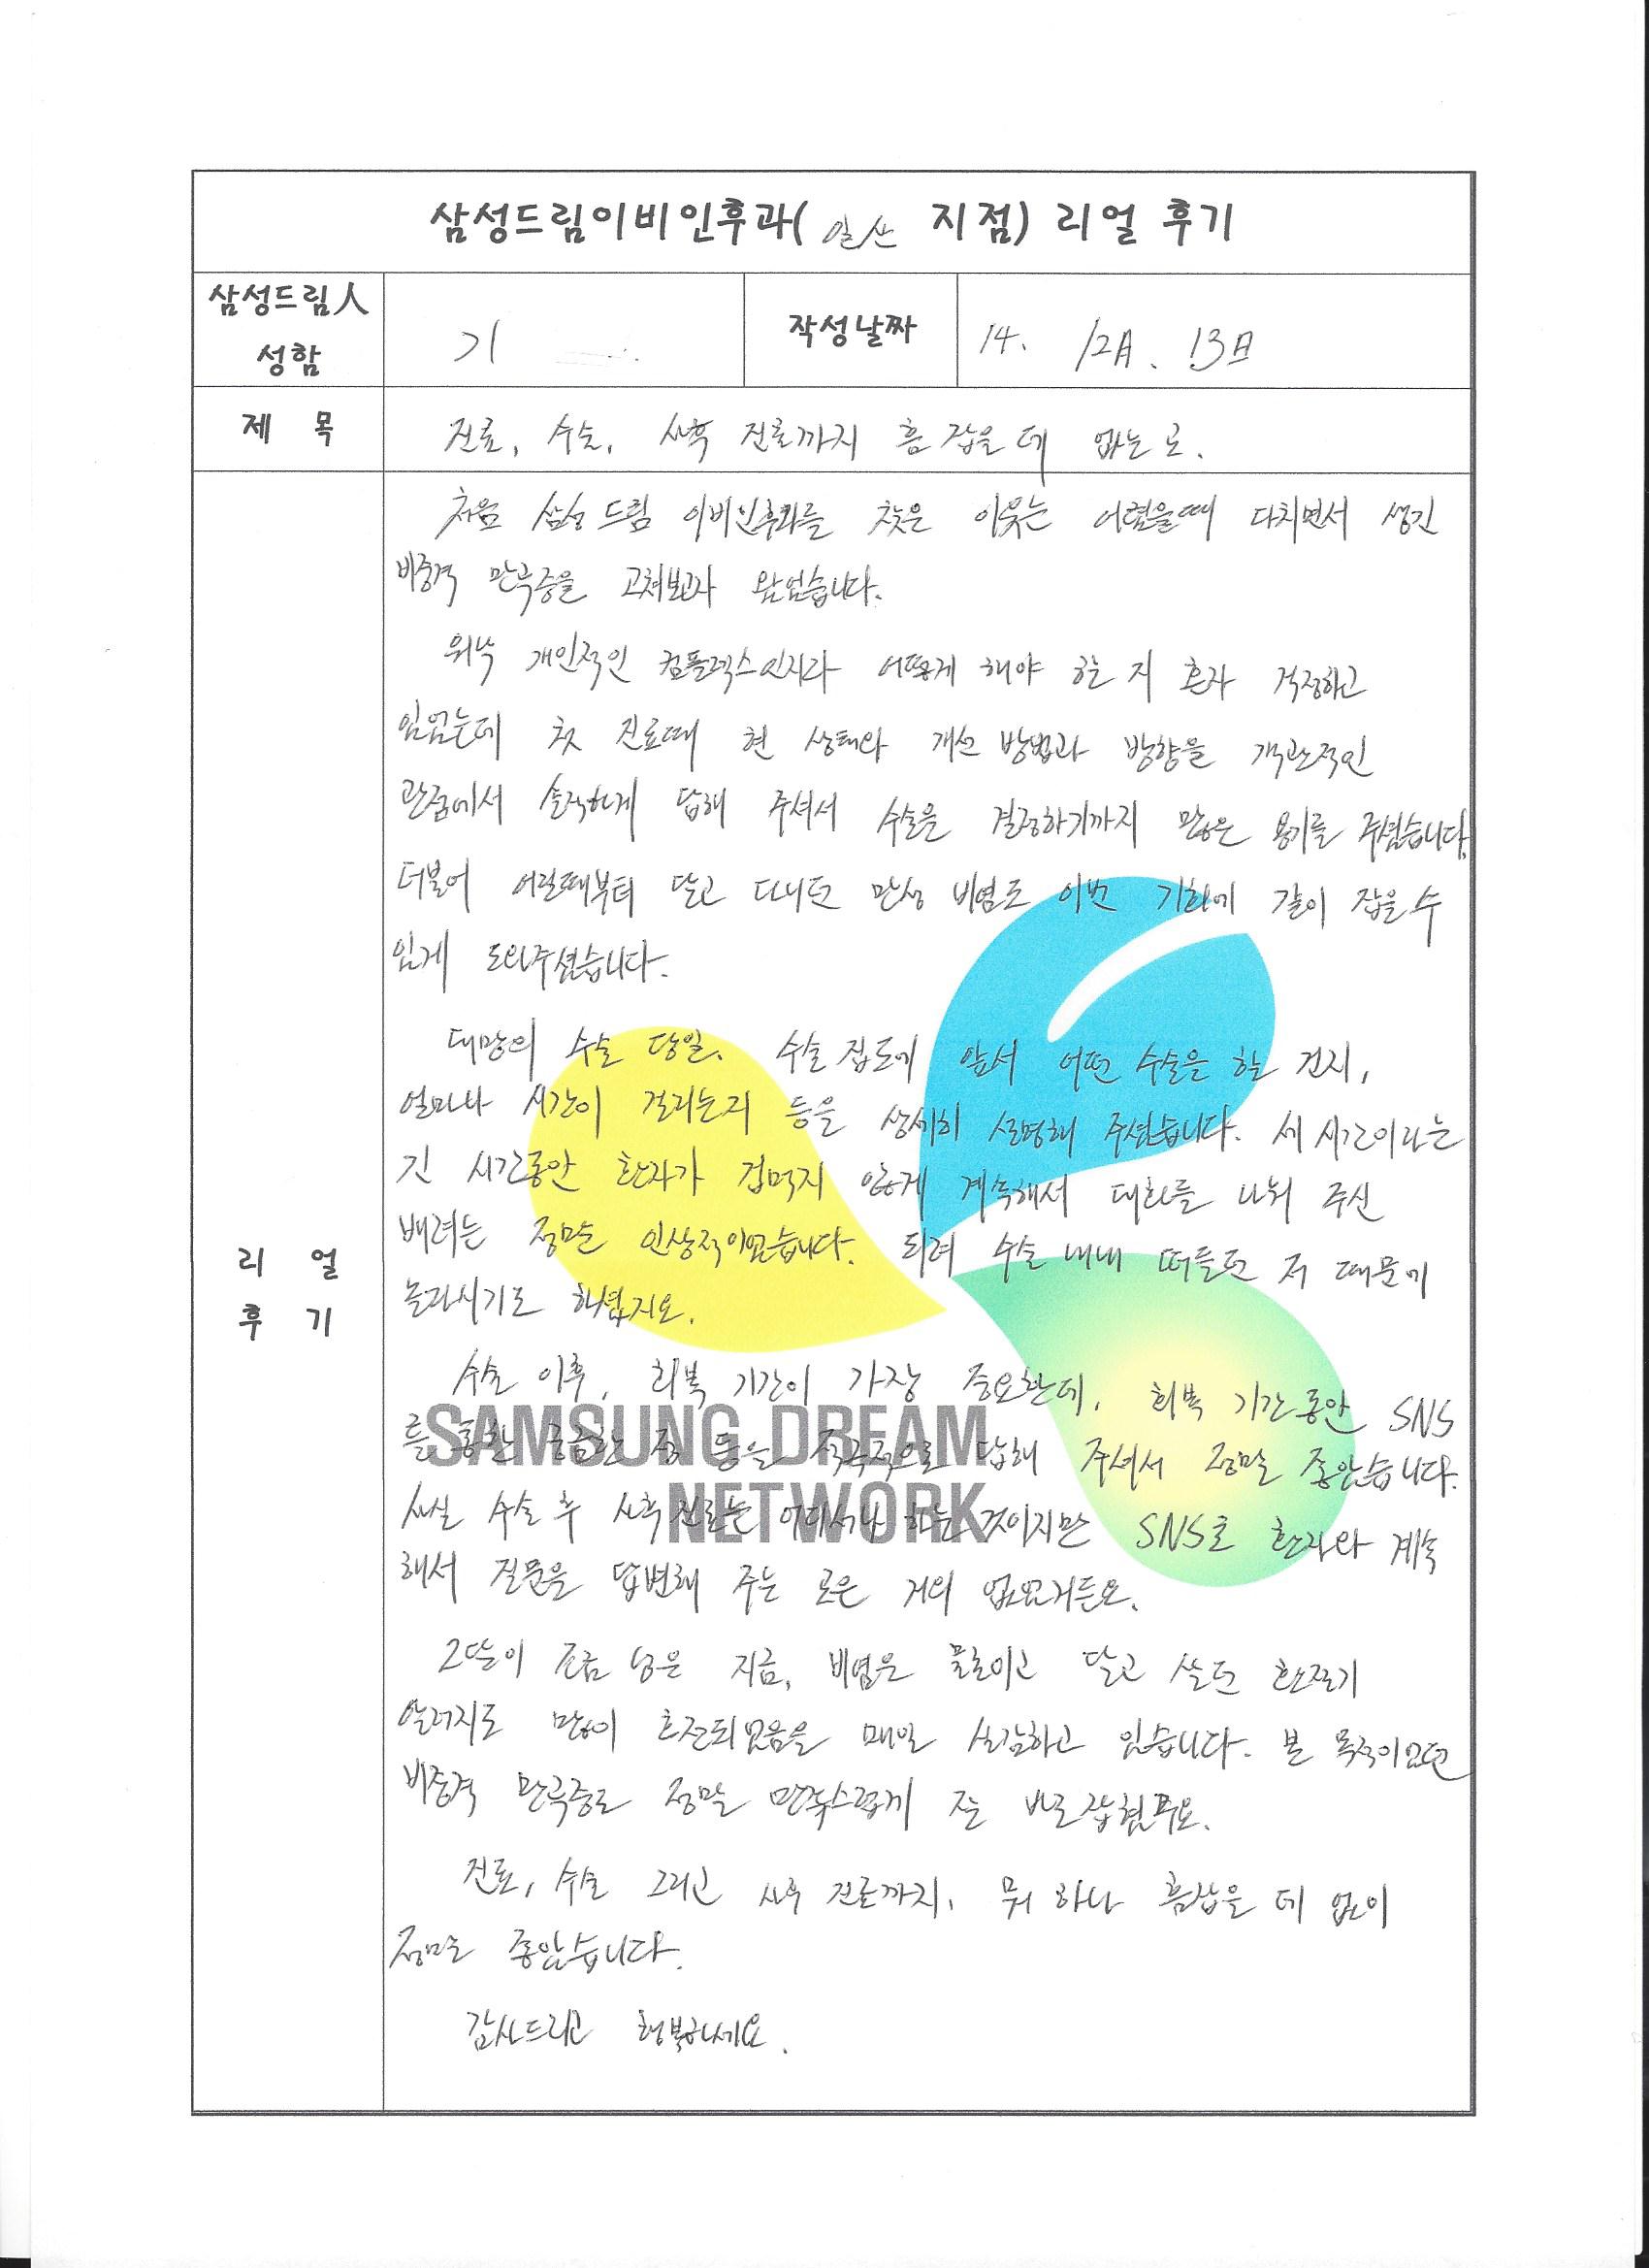 삼성드림이비인후과( 일산 지점) 리얼 후기
삼성드림人
성함
기
작성날짜
14. 12月. 13日
제 목
진료, 수술, 사후 진료까지 흠 잡을 데 없는 곳.
리 얼
후 기
처음 삼성드림 이비인후과를 찾은 이유는 어렸을때 다치면서 생긴
비중격 만곡증을 고쳐보고자 왔었습니다.
워낙 개인적인 컴플렉스인지라 어떻게 해야 하는 지 혼자 걱정하고
있었는데 첫 진료때 현 상태와 개선 방법과 방향을 객관적인
관점에서 솔직하게 답해 주셔서 수술을 결정하기까지 많은 용기를 주셨습니다.
더불어 어릴때부터 달고 다니던 만성 비염도 이번 기회에 같이 잡을 수
있게 도와주셨습니다.
대망의 수술 당일. 수술 집도에 앞서 어떤 수술을 할 건지,
얼마나 시간이 걸리는지 등을 상세히 설명해 주셨습니다. 세 시간이라는
긴 시간동안 환자가 겁먹지 않게 계속해서 대화를 나눠 주신
배려는 정말 인상적이었습니다. 되려 수술 내내 떠들던 저 때문에
놀라시기도 하셨지요.
수술 이후, 회복 기간이 가장 중요한데, 회복 기간동안 SNS
를 통한 궁금한 점 등을 적극적으로 답해 주셔서 정말 좋았습니다.
사실 수술 후 사후 진료는 어디서나 하는 것이지만 SNS로 환자와 계속
해서 질문을 답변해 주는 곳은 거의 없었거든요.
2달이 조금 넘은 지금, 비염은 물론이고 달고 살던 환절기
알러지도 많이 호전되었음을 매일 실감하고 있습니다. 본 목적이었던
비중격 만곡증도 정말 만족스럽게 잘 바로잡혔구요.
진료, 수술 그리고 사후 진료까지, 뭐 하나 흠잡을 데 없이
정말 좋았습니다.
감사드리고 행복하세요.
SAMSUNG DREAM
NETWORK